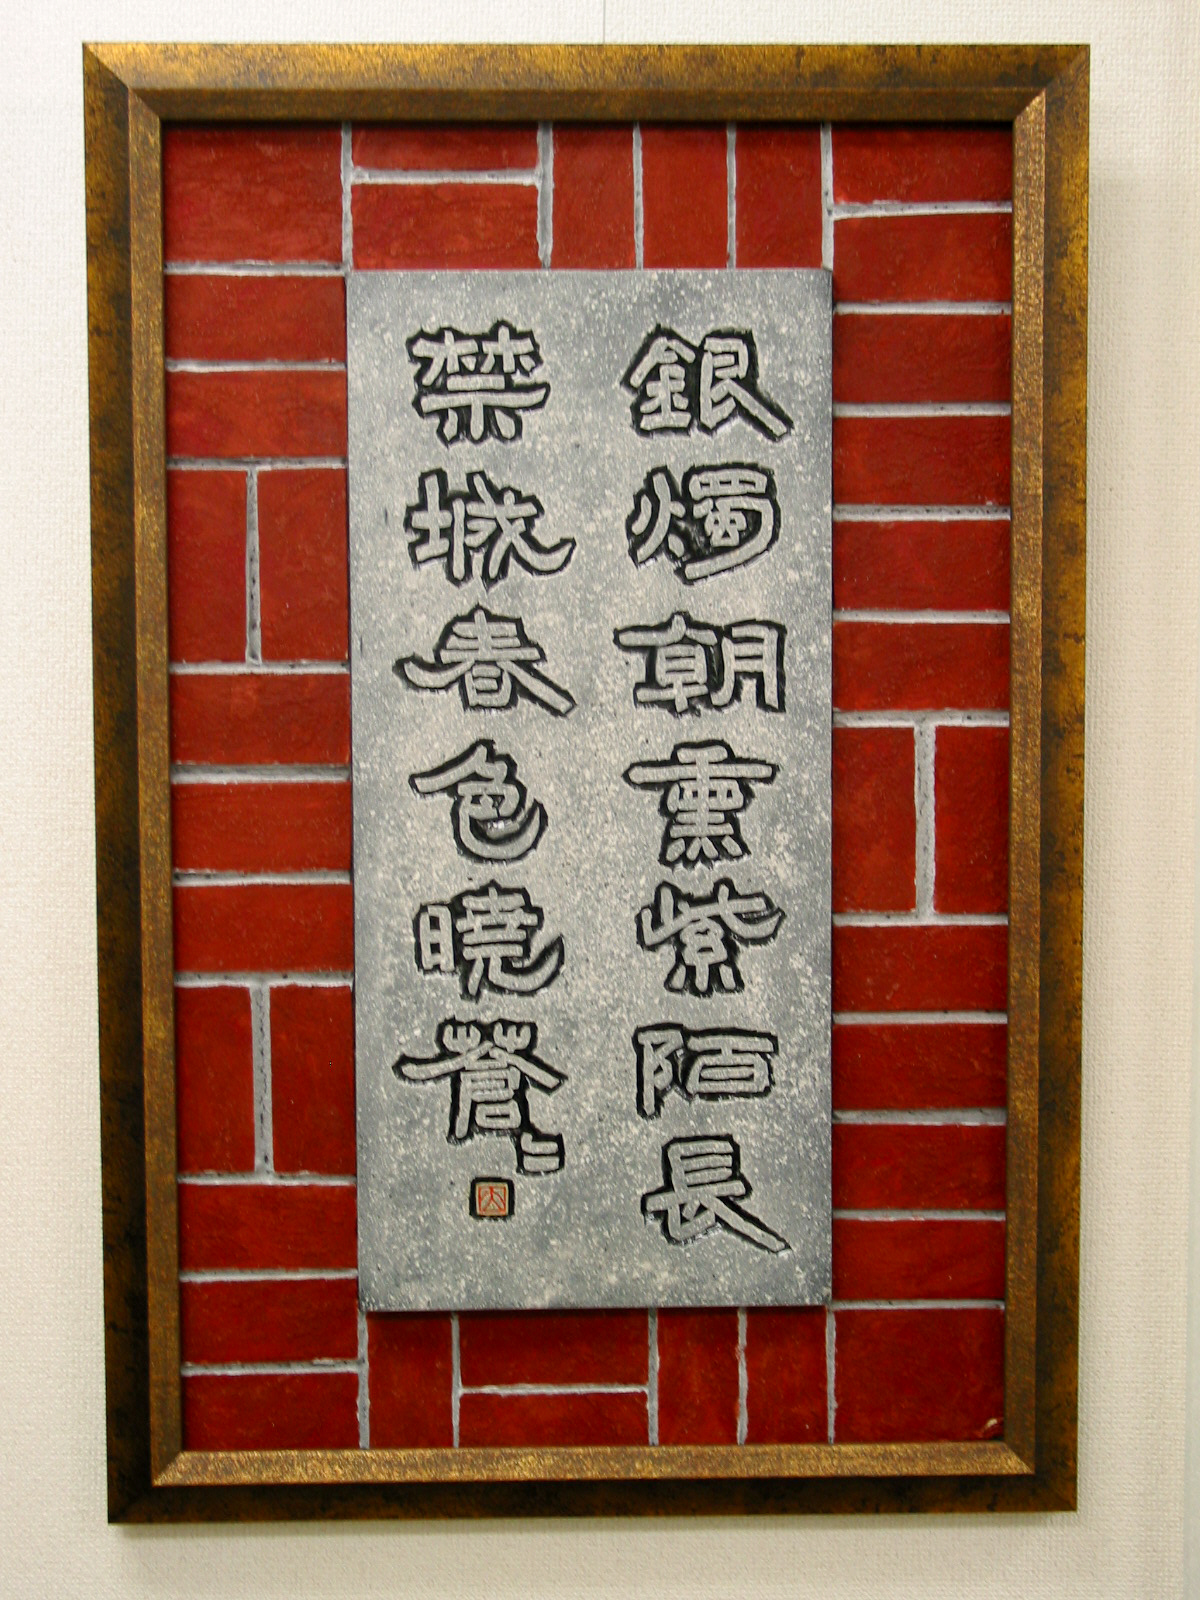 銀燭朝熏紫陌長
禁城春色曉蒼〻